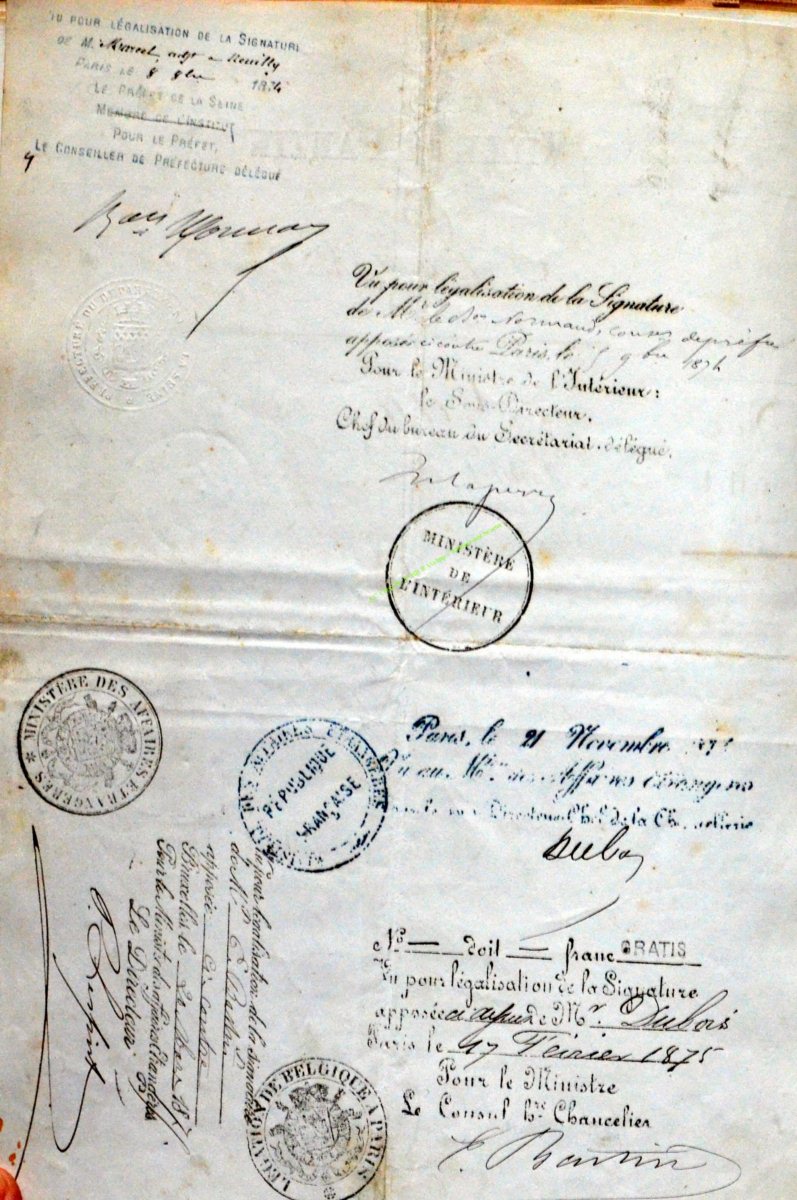 VU POUR LÉGALISATION DE LA SIGNATURE
DE M. Marcel, adjt à Neuilly
PARIS LE 8 9bre 1874
LE PRÉFET DE LA SEINE
MEMBRE DE L'INSTITUT
POUR LE PRÉFET,
LE CONSEILLER DE PRÉFECTURE DÉLÉGUÉ
PRÉFECTURE DU DÉPARTEMENT DE LA SEINE
Vu pour légalisation de la Signature
de Mr le Bon Normand conser de préfre
apposée ci contre Paris, le 9bre 1874
Pour le Ministre de l'Intérieur:
le Sous-Directeur,
Chef du bureau du Secrétariat, délégué,
MINISTÈRE
DE
L'INTÉRIEUR
MINISTÈRE DES AFFAIRES ETRANGÈRES
MINISTÈRE DES AFFAIRES ETRANGÈRES
RÉPUBLIQUE
FRANÇAISE
Paris, le 21 Novembre 187
Vu au Mtre des Affaires étrangères
Directeur Chef de la Chancellerie
Dubois
Vu pour légalisation de la signature
de Mr
apposée ci contre
Bruxelles, le
Pour le Ministre des Affaires Etrangères
Le Directeur
No — doit — franc GRATIS
Vu pour légalisation de la Signature
apposée ci dessus de Mr. Dubois
Paris le 17 Février 1875
Pour le Ministre
Le Consul hre Chancelier
LÉGATION DE BELGIQUE À PARIS